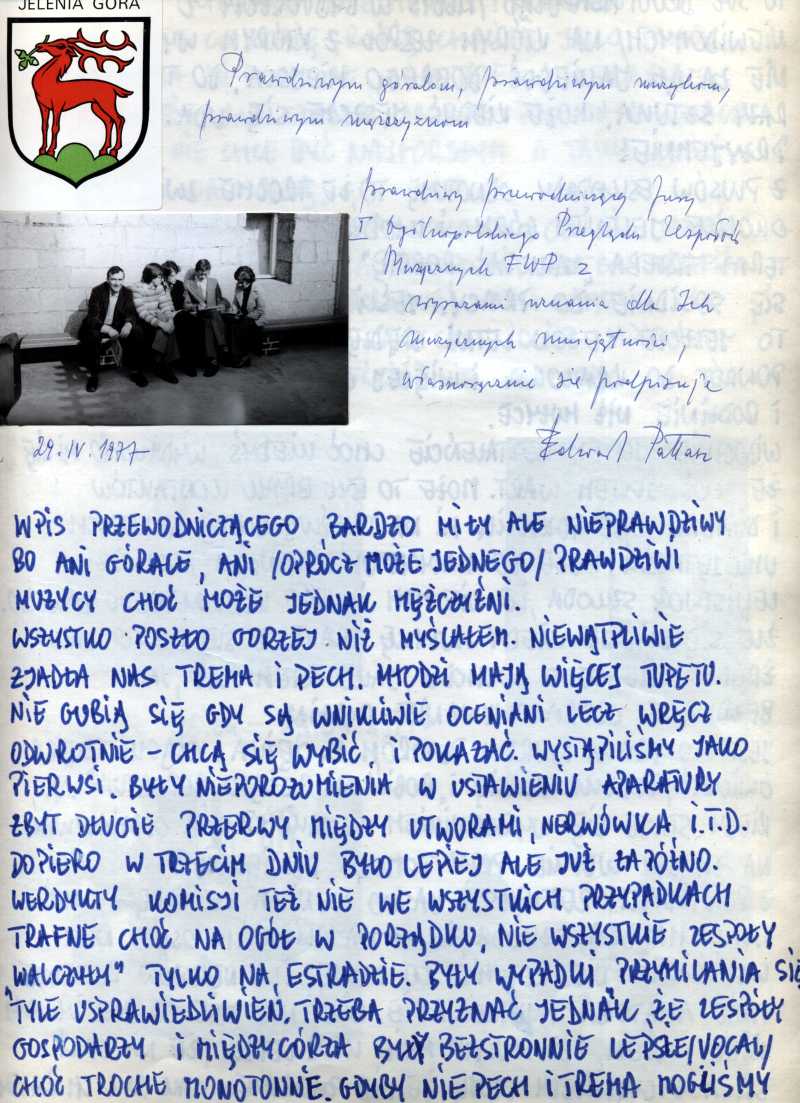 JELENIA GÓRA
Prawdziwym góralom, prawdziwym muzykom,
prawdziwym mężczyznom
prawdziwy Przewodniczący Jury
I Ogólnopolskiego Przeglądu Zespołów
Muzycznych FWP z
wyrazami uznania dla Ich
muzycznych umiejętności,
własnoręcznie się podpisuje
29.IV.1977
Edward
WPIS PRZEWODNICZĄCEGO BARDZO MIŁY ALE NIEPRAWDZIWY
BO ANI GÓRALE, ANI /OPRÓCZ MOŻE JEDNEGO/ PRAWDZIWI
MUZYCY CHOĆ MOŻE JEDNAK MĘŻCZYŹNI.
WSZYSTKO POSZŁO GORZEJ NIŻ MYŚLAŁEM. NIEWĄTPLIWIE
ZJADŁA NAS TREMA I PECH. MŁODZI MAJĄ WIĘCEJ TUPETU.
NIE GUBIĄ SIĘ GDY SĄ WNIKLIWIE OCENIANI LECZ WRĘCZ
ODWROTNIE – CHCĄ SIĘ WYBIĆ I POKAZAĆ. WYSTĄPILIŚMY JAKO
PIERWSI. BYŁY NIEPOROZUMIENIA W USTAWIENIU APARATURY
ZBYT DŁUGIE PRZERWY MIĘDZY UTWORAMI, NERWÓWKA I.T.D.
DOPIERO W TRZECIM DNIU BYŁO LEPIEJ ALE JUŻ ZAPÓŹNO.
WERDYKTY KOMISJI TEŻ NIE WE WSZYSTKICH PRZYPADKACH
TRAFNE CHOĆ NA OGÓŁ W PORZĄDKU. NIE WSZYSTKIE ZESPOŁY
„WALCZYŁY" TYLKO NA ESTRADZIE. BYŁY WYPADKI PRZYMILANIA SIĘ
TYLE USPRAWIEDLIWIEŃ. TRZEBA PRZYZNAĆ JEDNAK ŻE ZESPOŁY
GOSPODARZY I MIĘDZYGÓRZA BYŁY BEZSTRONNIE LEPSZE/VOCAL/
CHOĆ TROCHE MONOTONNE. GDYBY NIE PECH I TREMA MOGLIŚMY